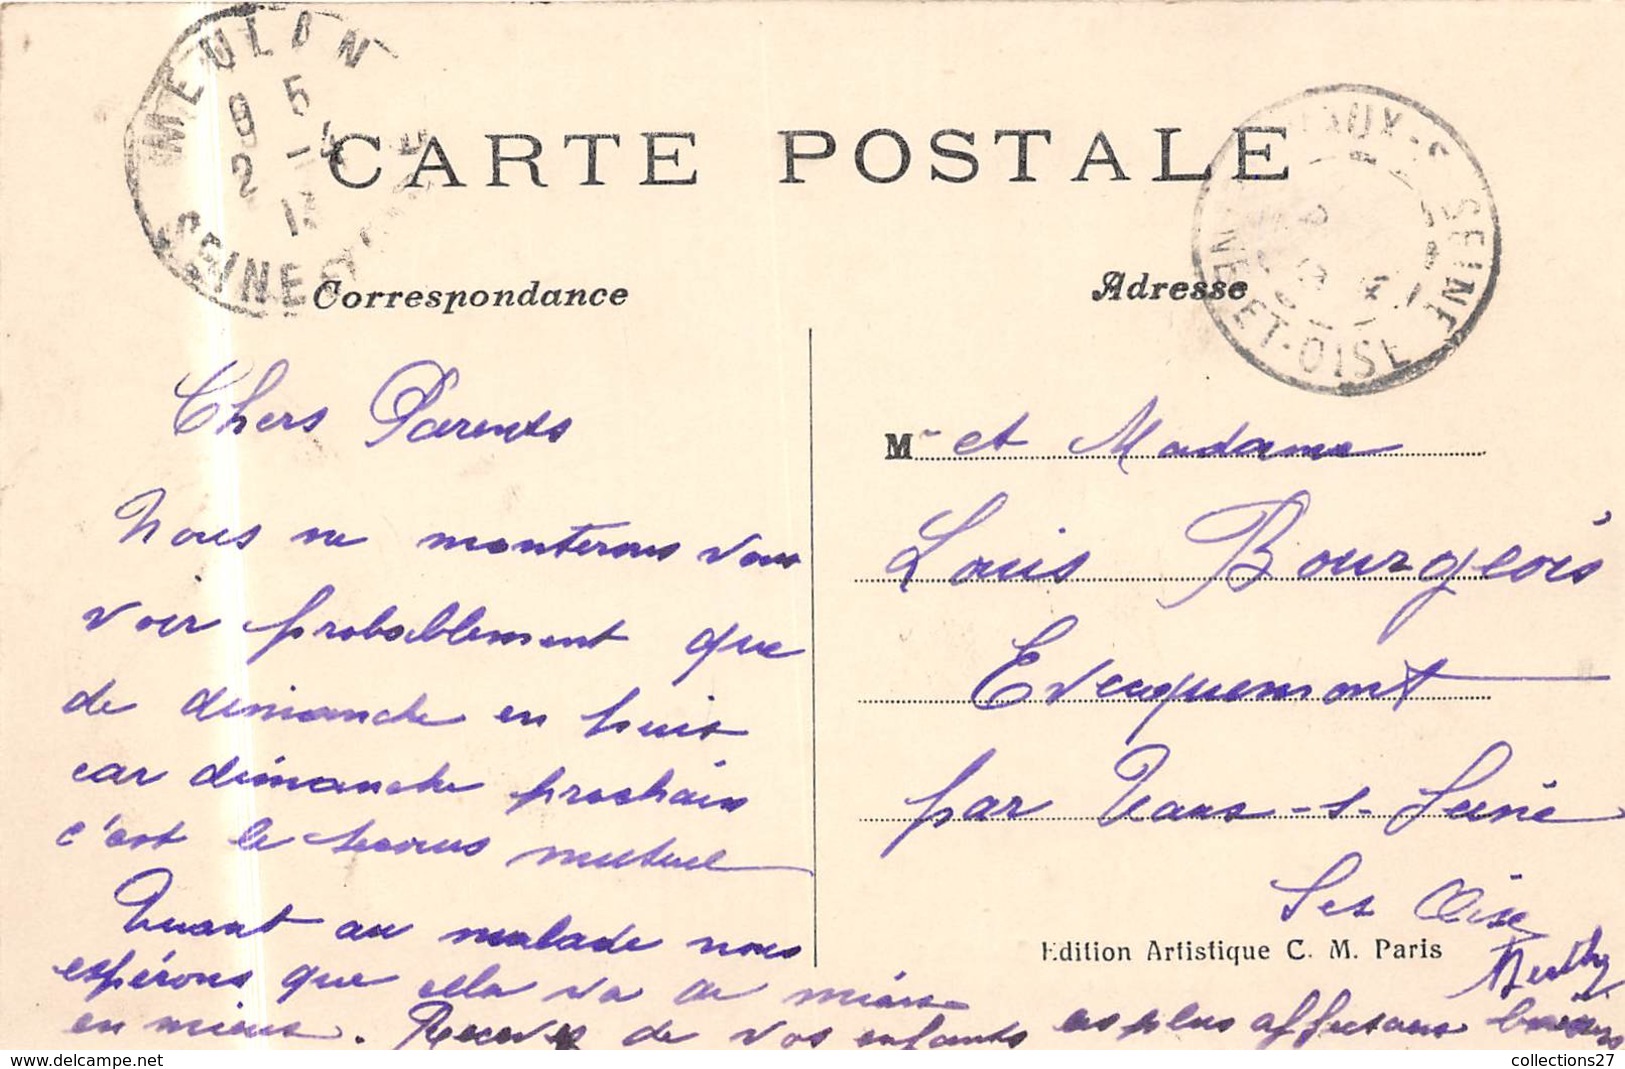 MEULAN
8 5
2 -4
13
SEINE ET OISE
CARTE POSTALE
AUX-S-SEINE
SEINE-ET-OISE
Correspondance
Adresse
Chers Parents
Nous ne monterons vous
voir probablement que
de dimanche en huit
car dimanche prochain
c'est le secours mutuel
Quant au malade nous
espérons que ella va de mieux
en mieux. Recevez de vos enfants les plus affectueux baisers
M et Madame
Louis Bourgeois
Evecquemont
par Vaux-s-Seine
Set Oise
Edition Artistique C. M. Paris
Berthe
collections27